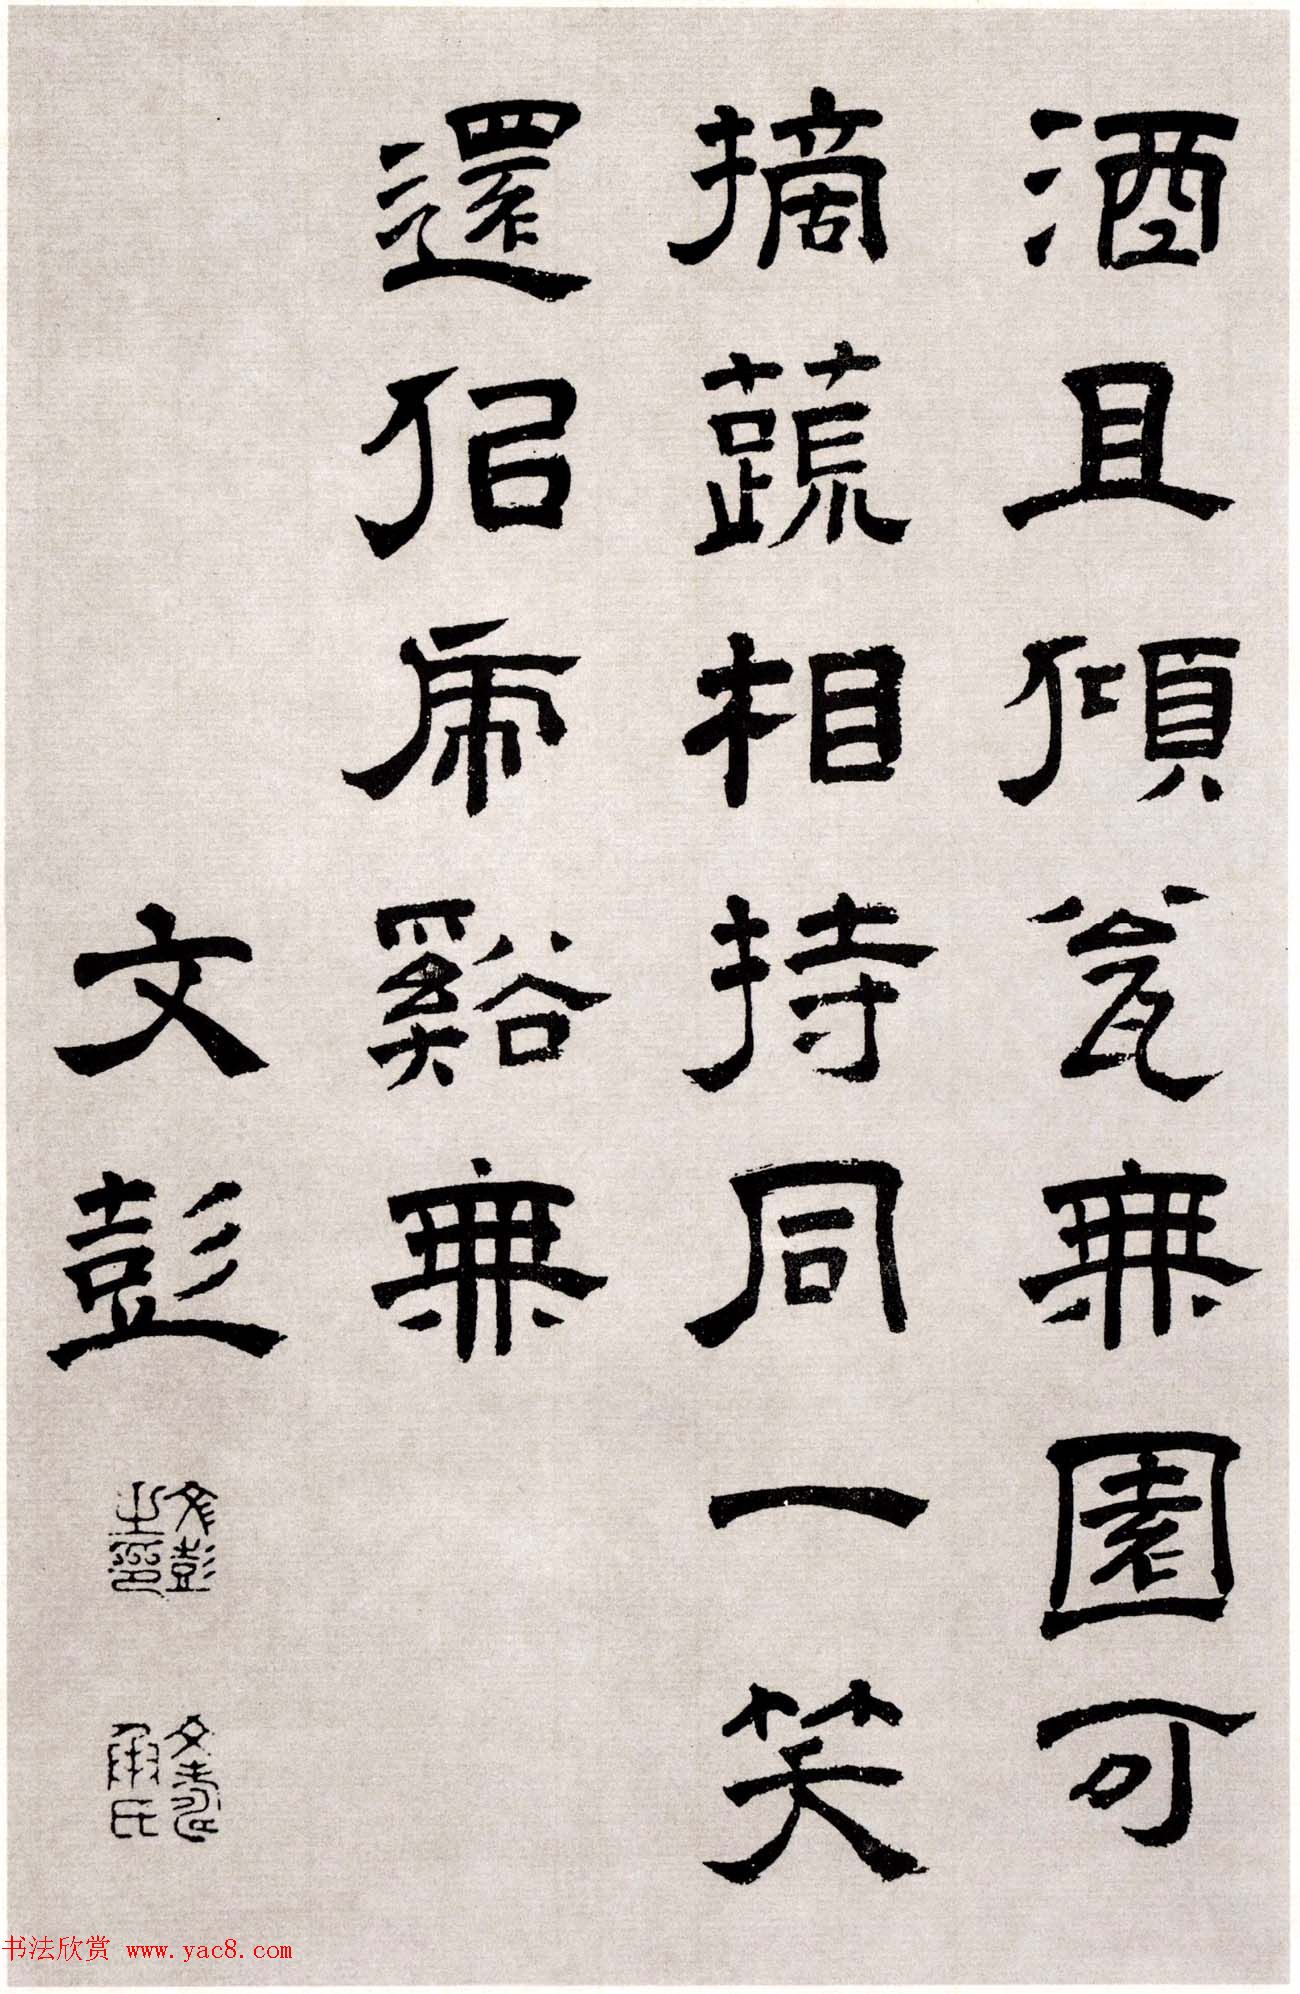 酒且傾瓮無園可
摘蔬相持同一笑
還侣虎谿無
文彭
文彭之印
文壽承氏
书法欣赏 www.yac8.com